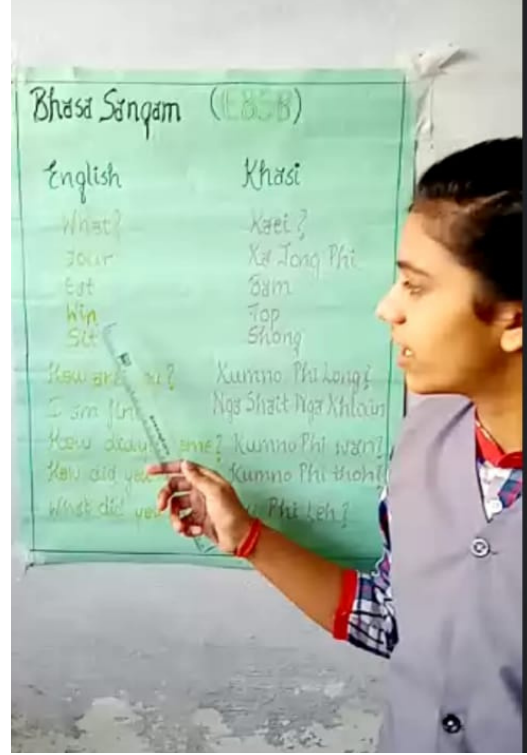 Bhasa Sangam (EBSB)
English Khasi
What? Kaei?
Your Ka Jong Phi
Eat Bam
Win Jop
Sit Shong
How are ? Kumno Phi Long?
I am fine Nga Shait Nga Khlain
How did ? Kumno Phi wan?
How did you Kumno Phi thoh?
What did you Phi Leh?